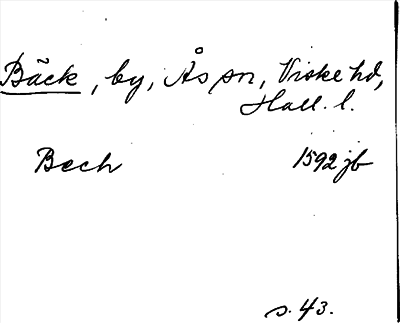 Bäck, by, Ås sn, Viske hd,
Hall. l.
Bech 1592 jb
s. 43.